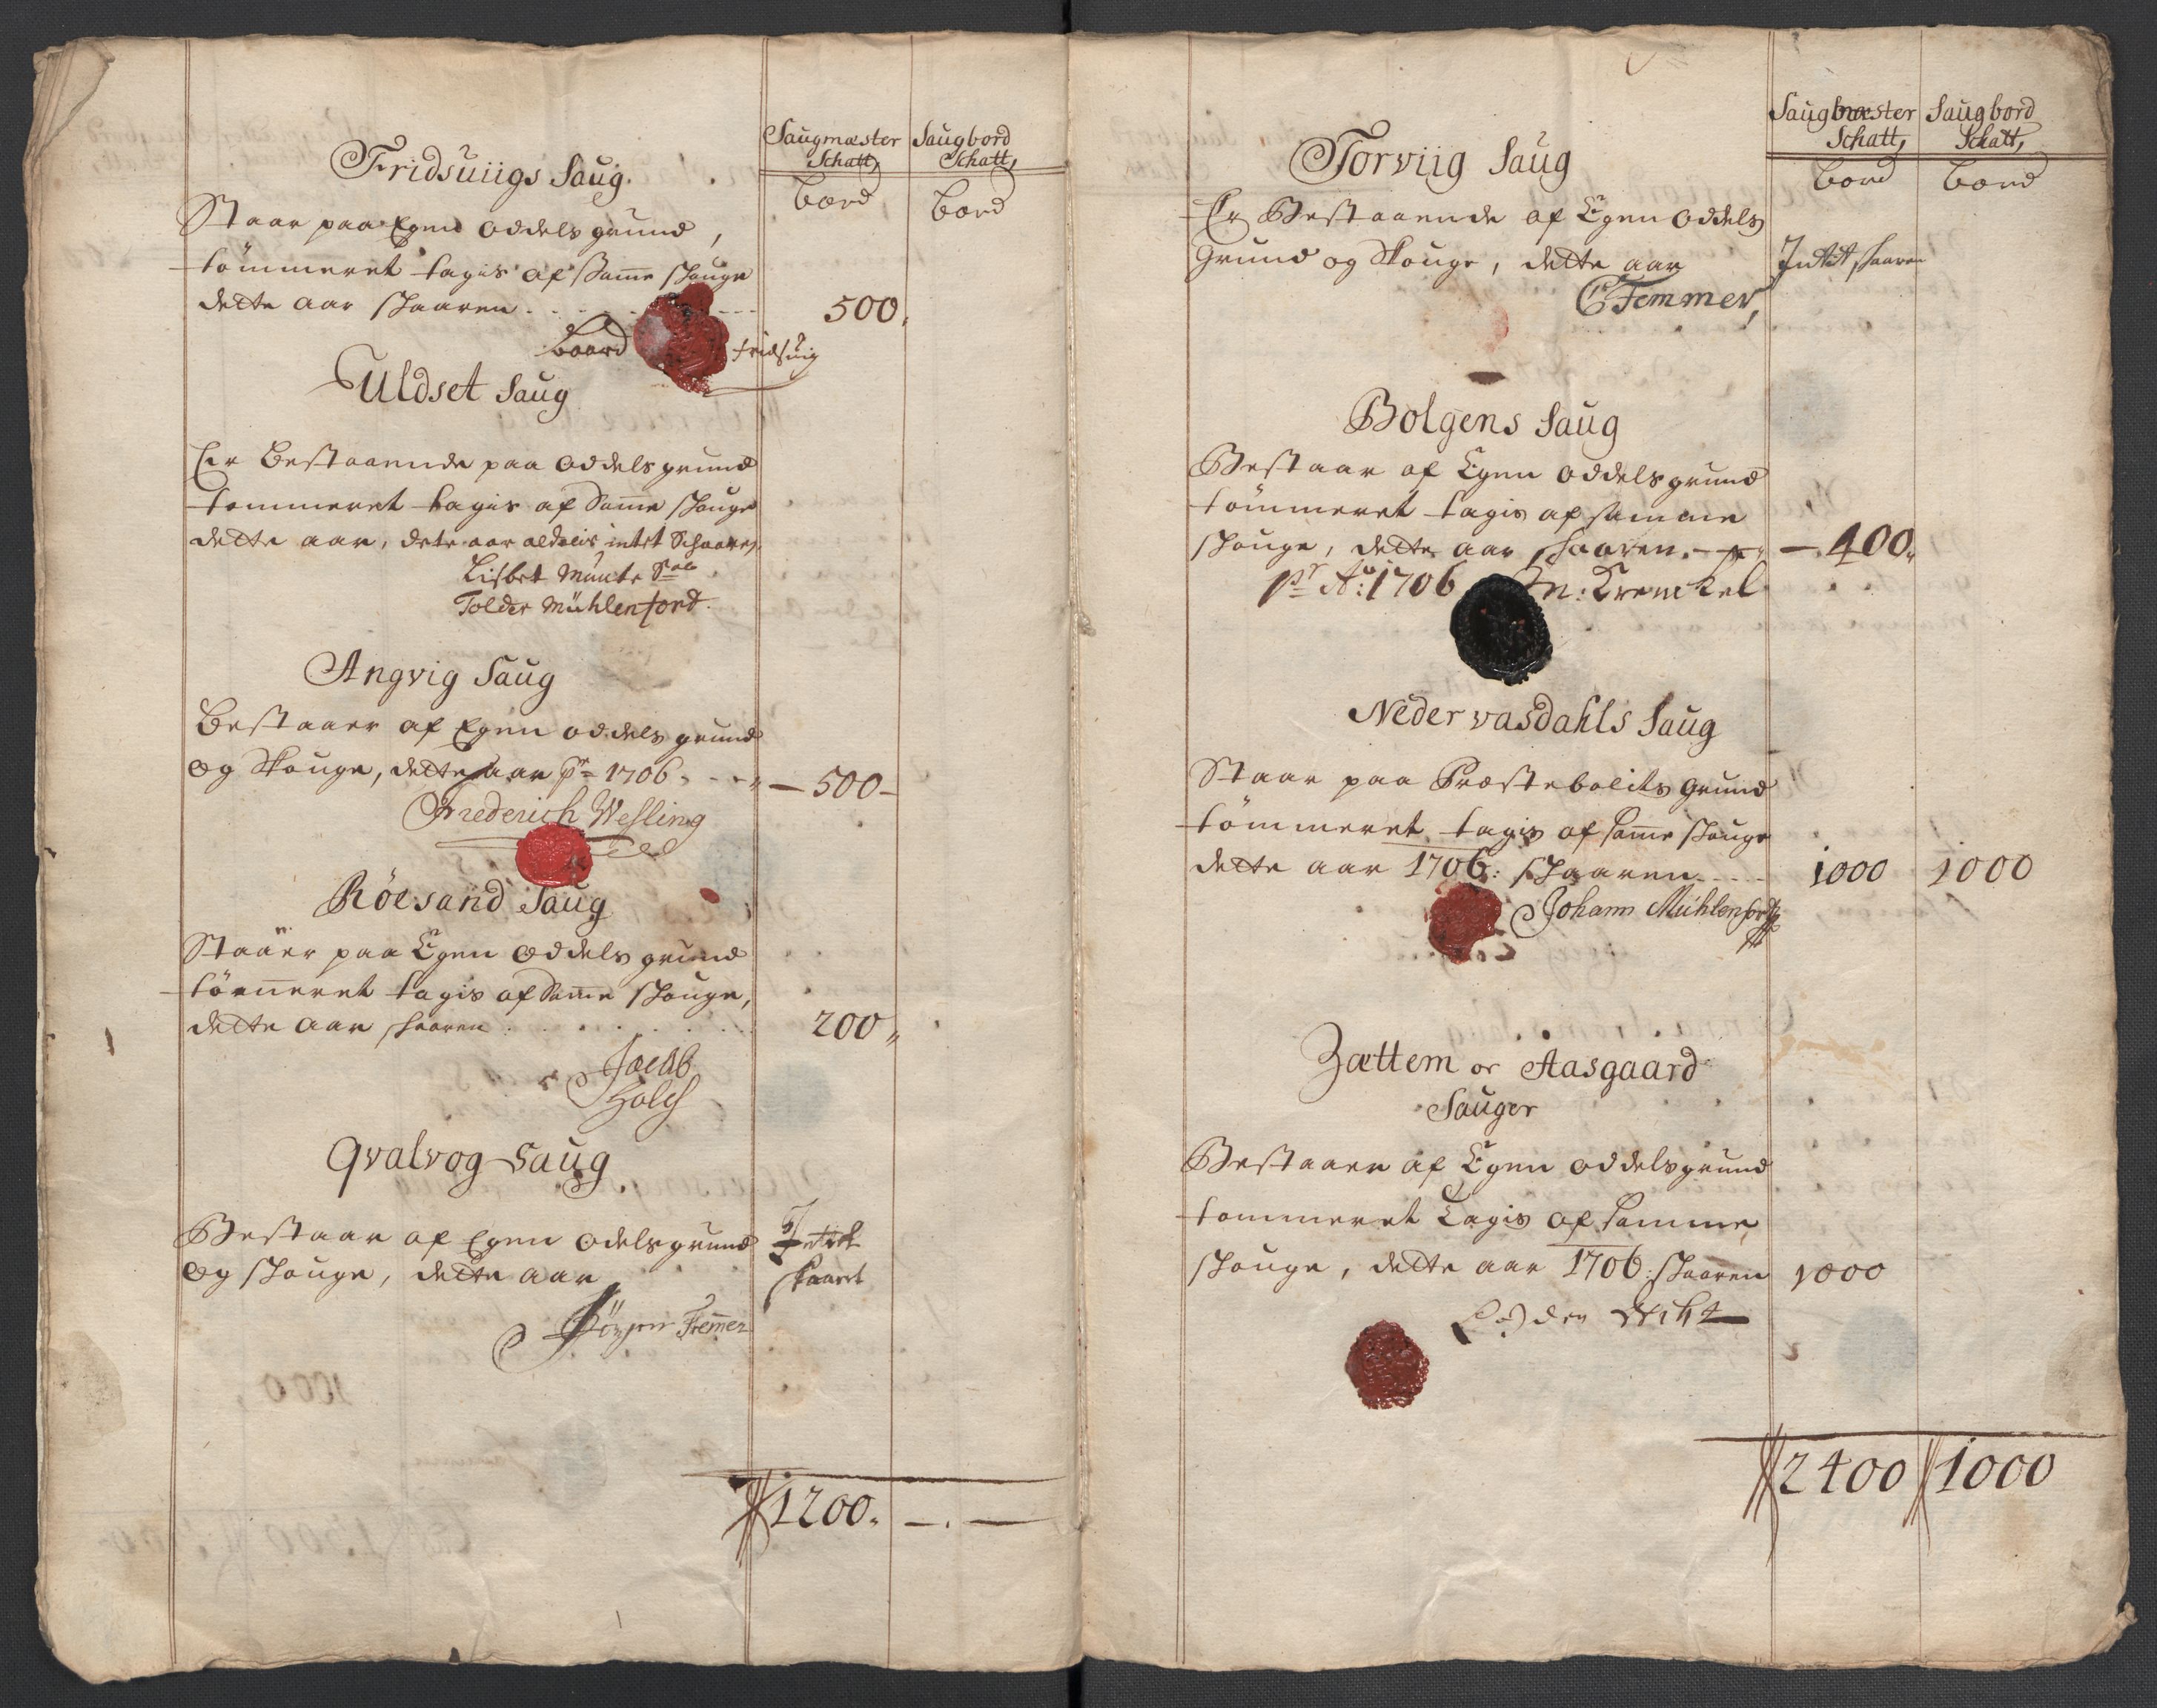 Saugmæster Saugbord
Schatt, Schatt,
bord bord
Fridsuiigs Saug.
Staar paa Egen Oddels grund,
tömmeret tagis af Samme skouge
dette aar skaaren . . . 500.
baard fridsuig
Uldset Saug
Er bestaaende paa Oddels grund
tommeret tagis af Samme skouge
dette aar, dete aar aldelis intet Schaaren
Lisbet Munte Sal
Tolder Mühlenfort.
Angvig Saug
bestaaer af Egen oddels grund
og skouge, dette aar pr 1706. - - - 500 -
Frederich Wesling
Röesand Saug
Staaer paa Egen Oddels grund
tömmeret tagis af Samme skouge,
dette aar skaaren . . . . 200"
Jacob
Holch
Qvalvog Saug.
Bestaar af Egen Odelsgrund Intet
og skouge, dette aar skaaret
Jörgen Fremmer
1200. - . -
Saugmæster Saugbord
Schatt, Schatt,
bord bord
Torviig Saug
Er Bestaaende af Egen Oddels
Grund og Skouge, dette aar Intet skaaren
C Femmer,
Bolgens Saug
Bestaar af Egen Oddelsgrund
tömmeret tagis af samme
skouge, dette aar skaaren. - - 400.
pr Ao: 1706 M: Krenckel
Nedervasdahls Saug
Staar paa Præstebolits Grund
tömmeret tagis af samme skouge
dette aar 1706: skaaren . . . 1000 1000
Johann Mühlenfordt
Zættem or Aasgaard
Sauger
Bestaaer af Egen oddelsgrund
tommeret Tagis af Samme
skouge, dette aar 1706: skaaren 1000
2400 1000